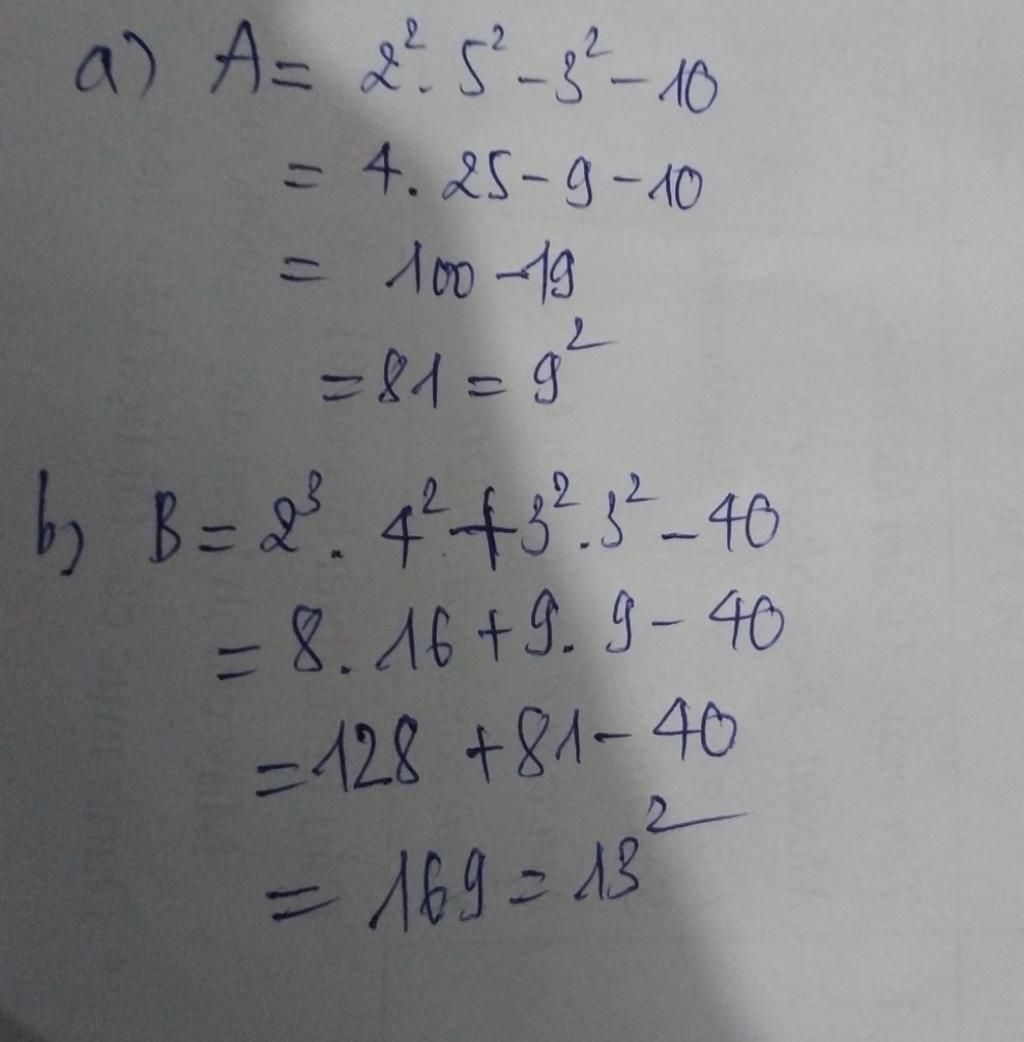 a) A = 2². 5² - 3² - 10
= 4. 25 - 9 - 10
= 100 - 19
= 81 = 9²
b) B = 2³. 4² + 3². 3² - 40
= 8. 16 + 9. 9 - 40
= 128 + 81 - 40
= 169 = 13²